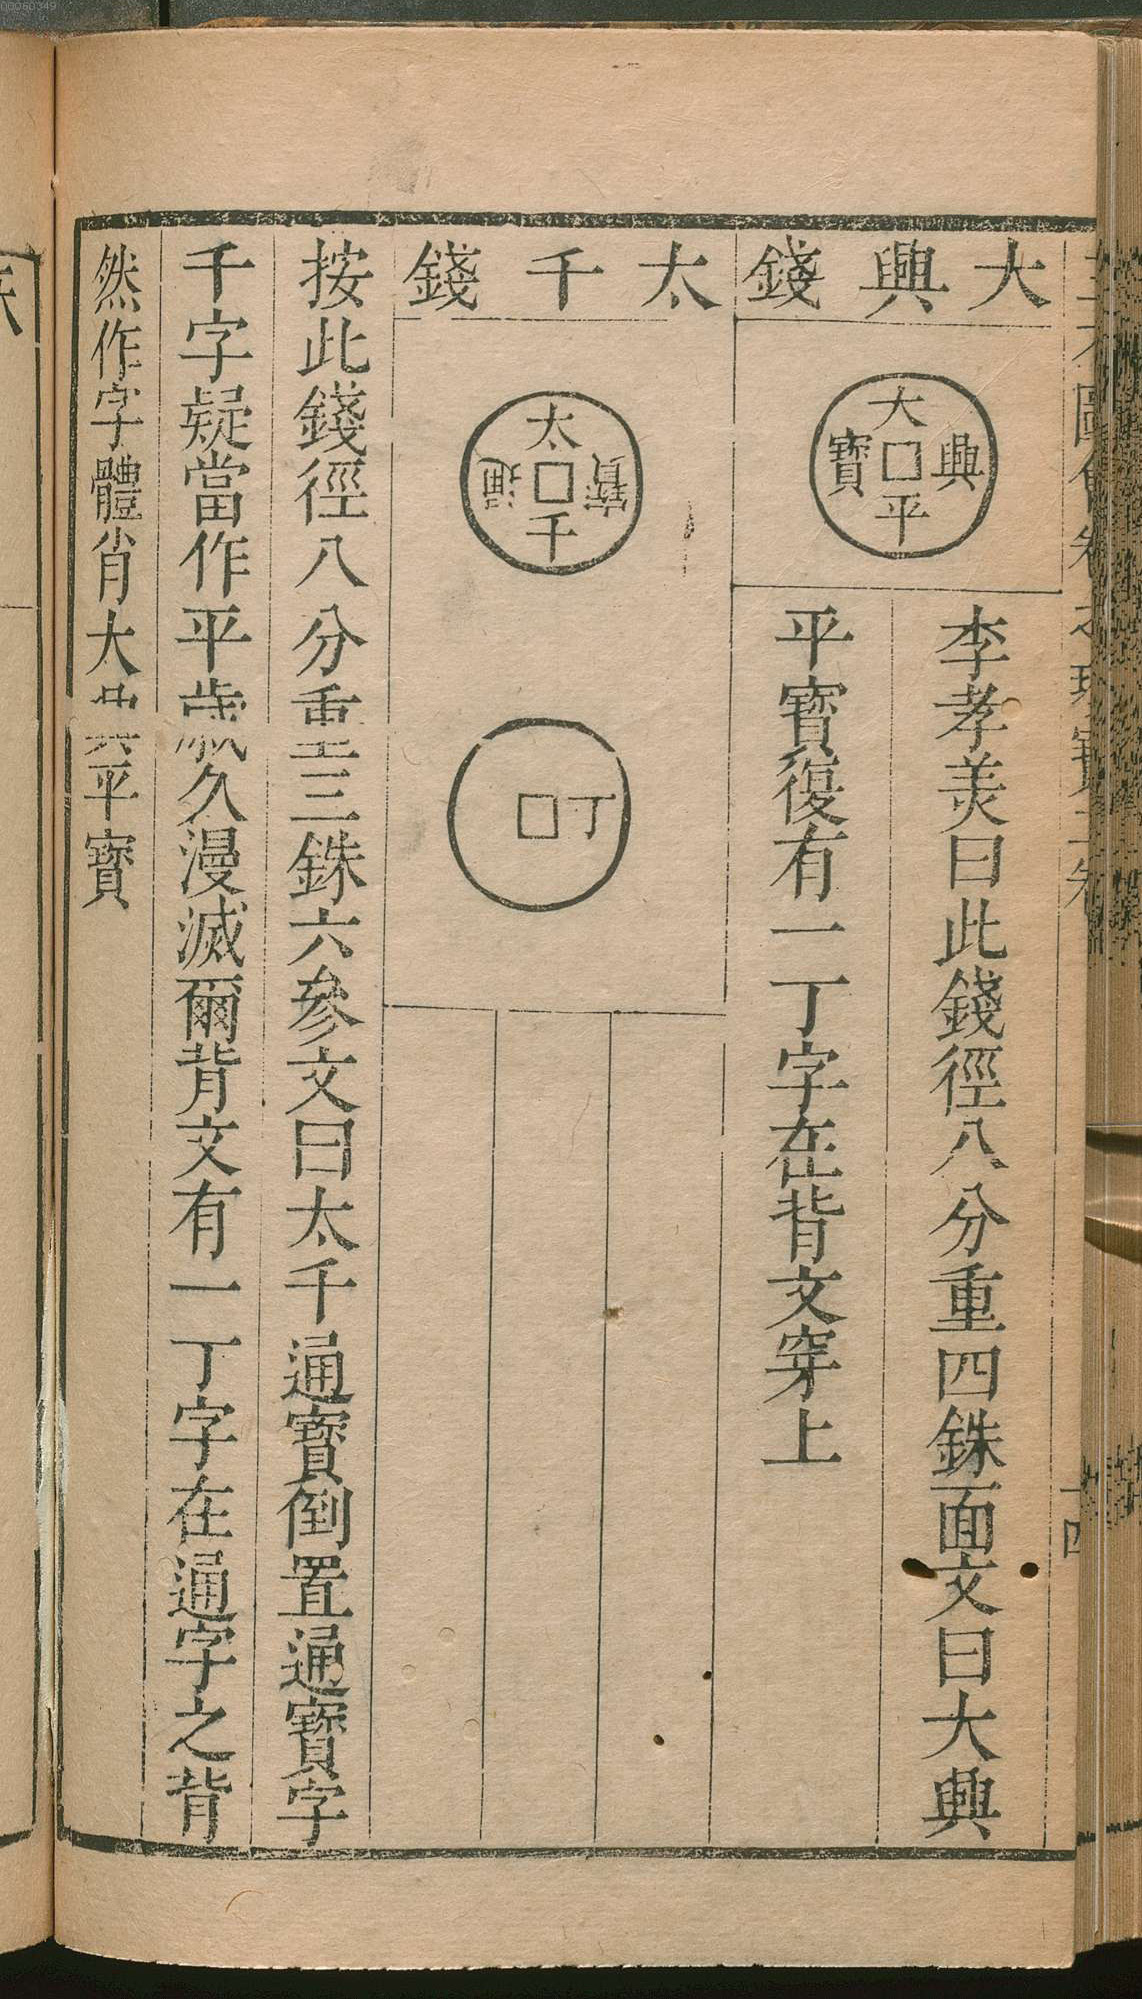 大興錢
大興平寶
李孝美曰此錢徑八分重四銖面文曰大興
平寶復有一丁字在背文穿上
太千錢
太千通寶
丁
按此錢徑八分重三銖六參文曰太千通寶倒置通寶字
千字疑當作平歲久漫滅爾背文有一丁字在通字之背
然作字體肖大興平寶
00060349